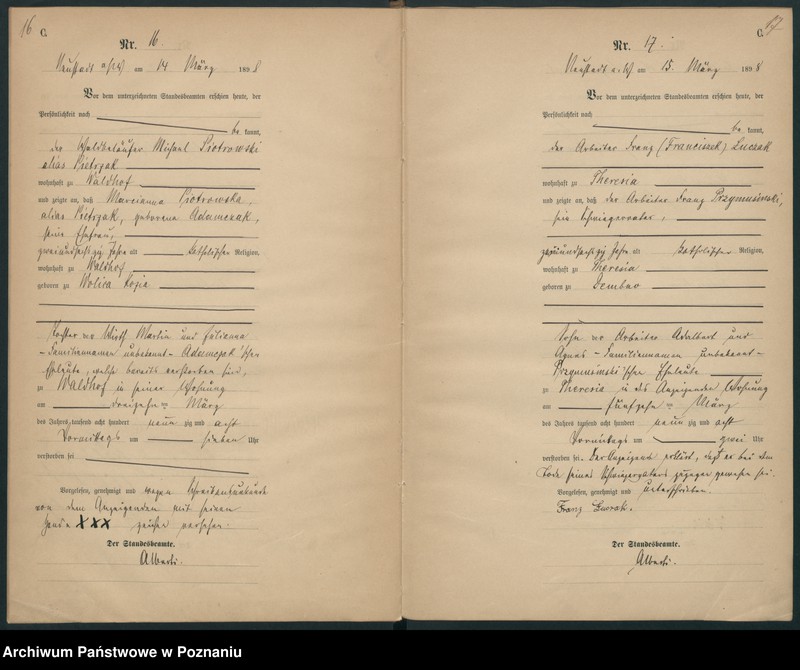 16
C.
Nr. 16.
Neustadt a/W am 14 März 1898
Vor dem unterzeichneten Standesbeamten erschien heute, der
Persönlichkeit nach
be kannt,
der Waldbeläufer Michael Piotrowski
alias Pietrzak
wohnhaft zu Waldhof
und zeigte an, daß Marcianna Piotrowska,
alias Pietrzak, geborene Adamczak,
seine Ehefrau,
zweiundsechzig Jahre alt katholischer Religion,
wohnhaft zu Waldhof
geboren zu Wolica Kozia
Tochter der Wirth Martin und Julianna
- Familiennamen unbekannt - Adamczak'schen
Eheleute, welche bereits verstorben sind,
zu Waldhof in seiner Wohnung
am dreizehn ten März
des Jahres tausend acht hundert neun zig und acht
Vormittags um sieben Uhr
verstorben sei
Vorgelesen, genehmigt und wegen Schreibensunkunde
von dem Anzeigenden mit seinem
Hand XXX zeichen versehen.
Der Standesbeamte.
Alberti.
17
C.
Nr. 17.
Neustadt a.W am 15. März 1898
Vor dem unterzeichneten Standesbeamten erschien heute, der
Persönlichkeit nach
be kannt,
der Arbeiter Franz (Franciszek) Luczak
wohnhaft zu Theresia
und zeigte an, daß der Arbeiter Franz Przymusinski,
sein Schwiegervater,
zweiundsechzig Jahre alt katholischer Religion,
wohnhaft zu Theresia
geboren zu Dembno
Sohn der Arbeiter Adalbert und
Agnes - Familiennamen unbekannt -
Przymusinski'schen Eheleute
zu Theresia in des Anzeigenden Wohnung
am fünfzehn ten März
des Jahres tausend acht hundert neun zig und acht
Vormittags um zwei Uhr
verstorben sei. Der Anzeigende erklärt, daß er bei dem
Tode seines Schwiegervaters zugegen gewesen sei.
Vorgelesen, genehmigt und unterschrieben.
Franz
Der Standesbeamte.
Alberti.
Archiwum Państwowe w Poznaniu